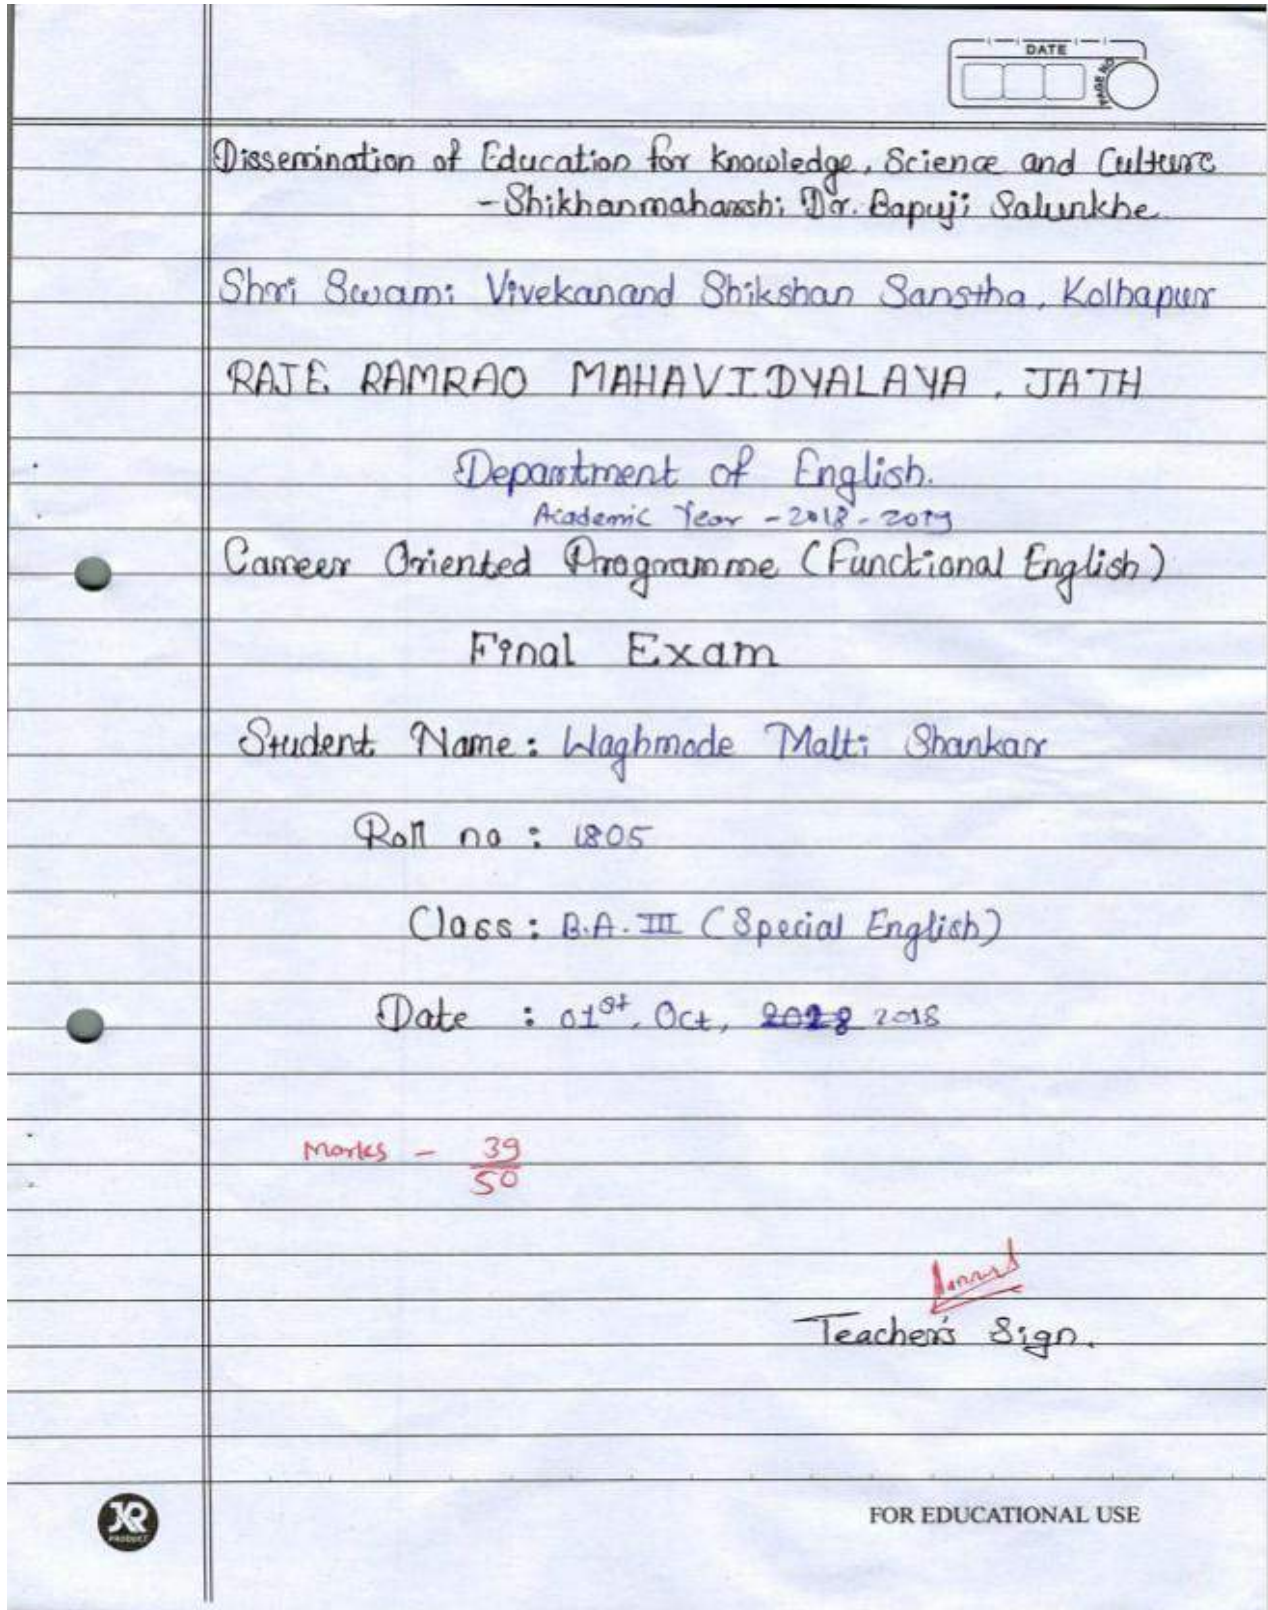 DATE
PAGE NO.
Dissemination of Education for Knowledge, Science and Culture
- Shikhanmaharshi Dr. Bapuji Salunkhe
Shri Swami Vivekanand Shikshan Sanstha, Kolhapur
RAJE RAMRAO MAHAVIDYALAYA, JATH
Department of English.
Academic Year - 2018 - 2019
Career Oriented Programme (Functional English)
Final Exam
Student Name : Waghmode Malti Shankar
Roll no : 1805
Class : B.A. III (Special English)
Date : 01st, Oct, 2028 2018
Marks - 39
50
Teacher's Sign.
JKR
PRODUCT
FOR EDUCATIONAL USE